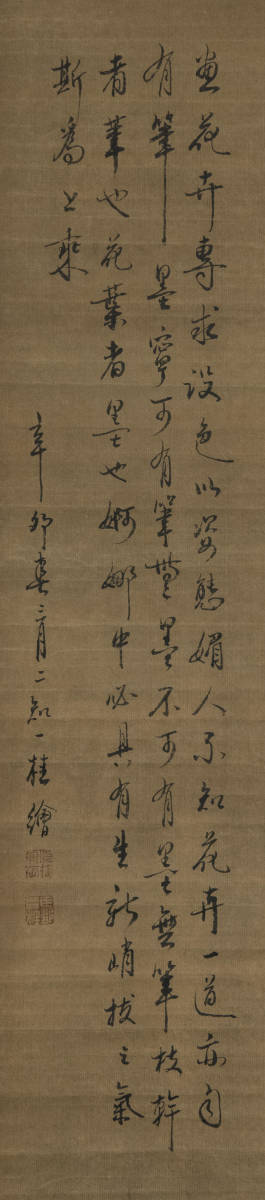 画花卉專求設色以姿態媚人不知花卉一道亦自
有筆墨寧可有筆無墨不可有墨無筆枝幹
者筆也花葉者墨也婀娜中必具有生新峭拔之氣
斯為上乘
辛卯春三月二知一桂繪